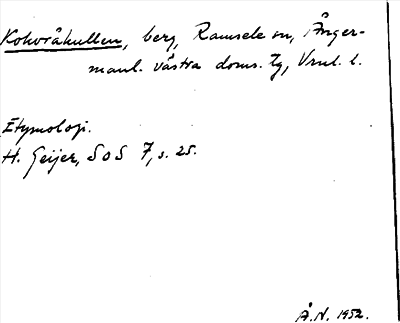 Kokvråkullen, berg, Ramsele sn, Ånger-
manl. västra doms. tg, Vnl. l.
Etymologi.
H. Geijer, SoS 7, s. 25.
Å. N. 1952.